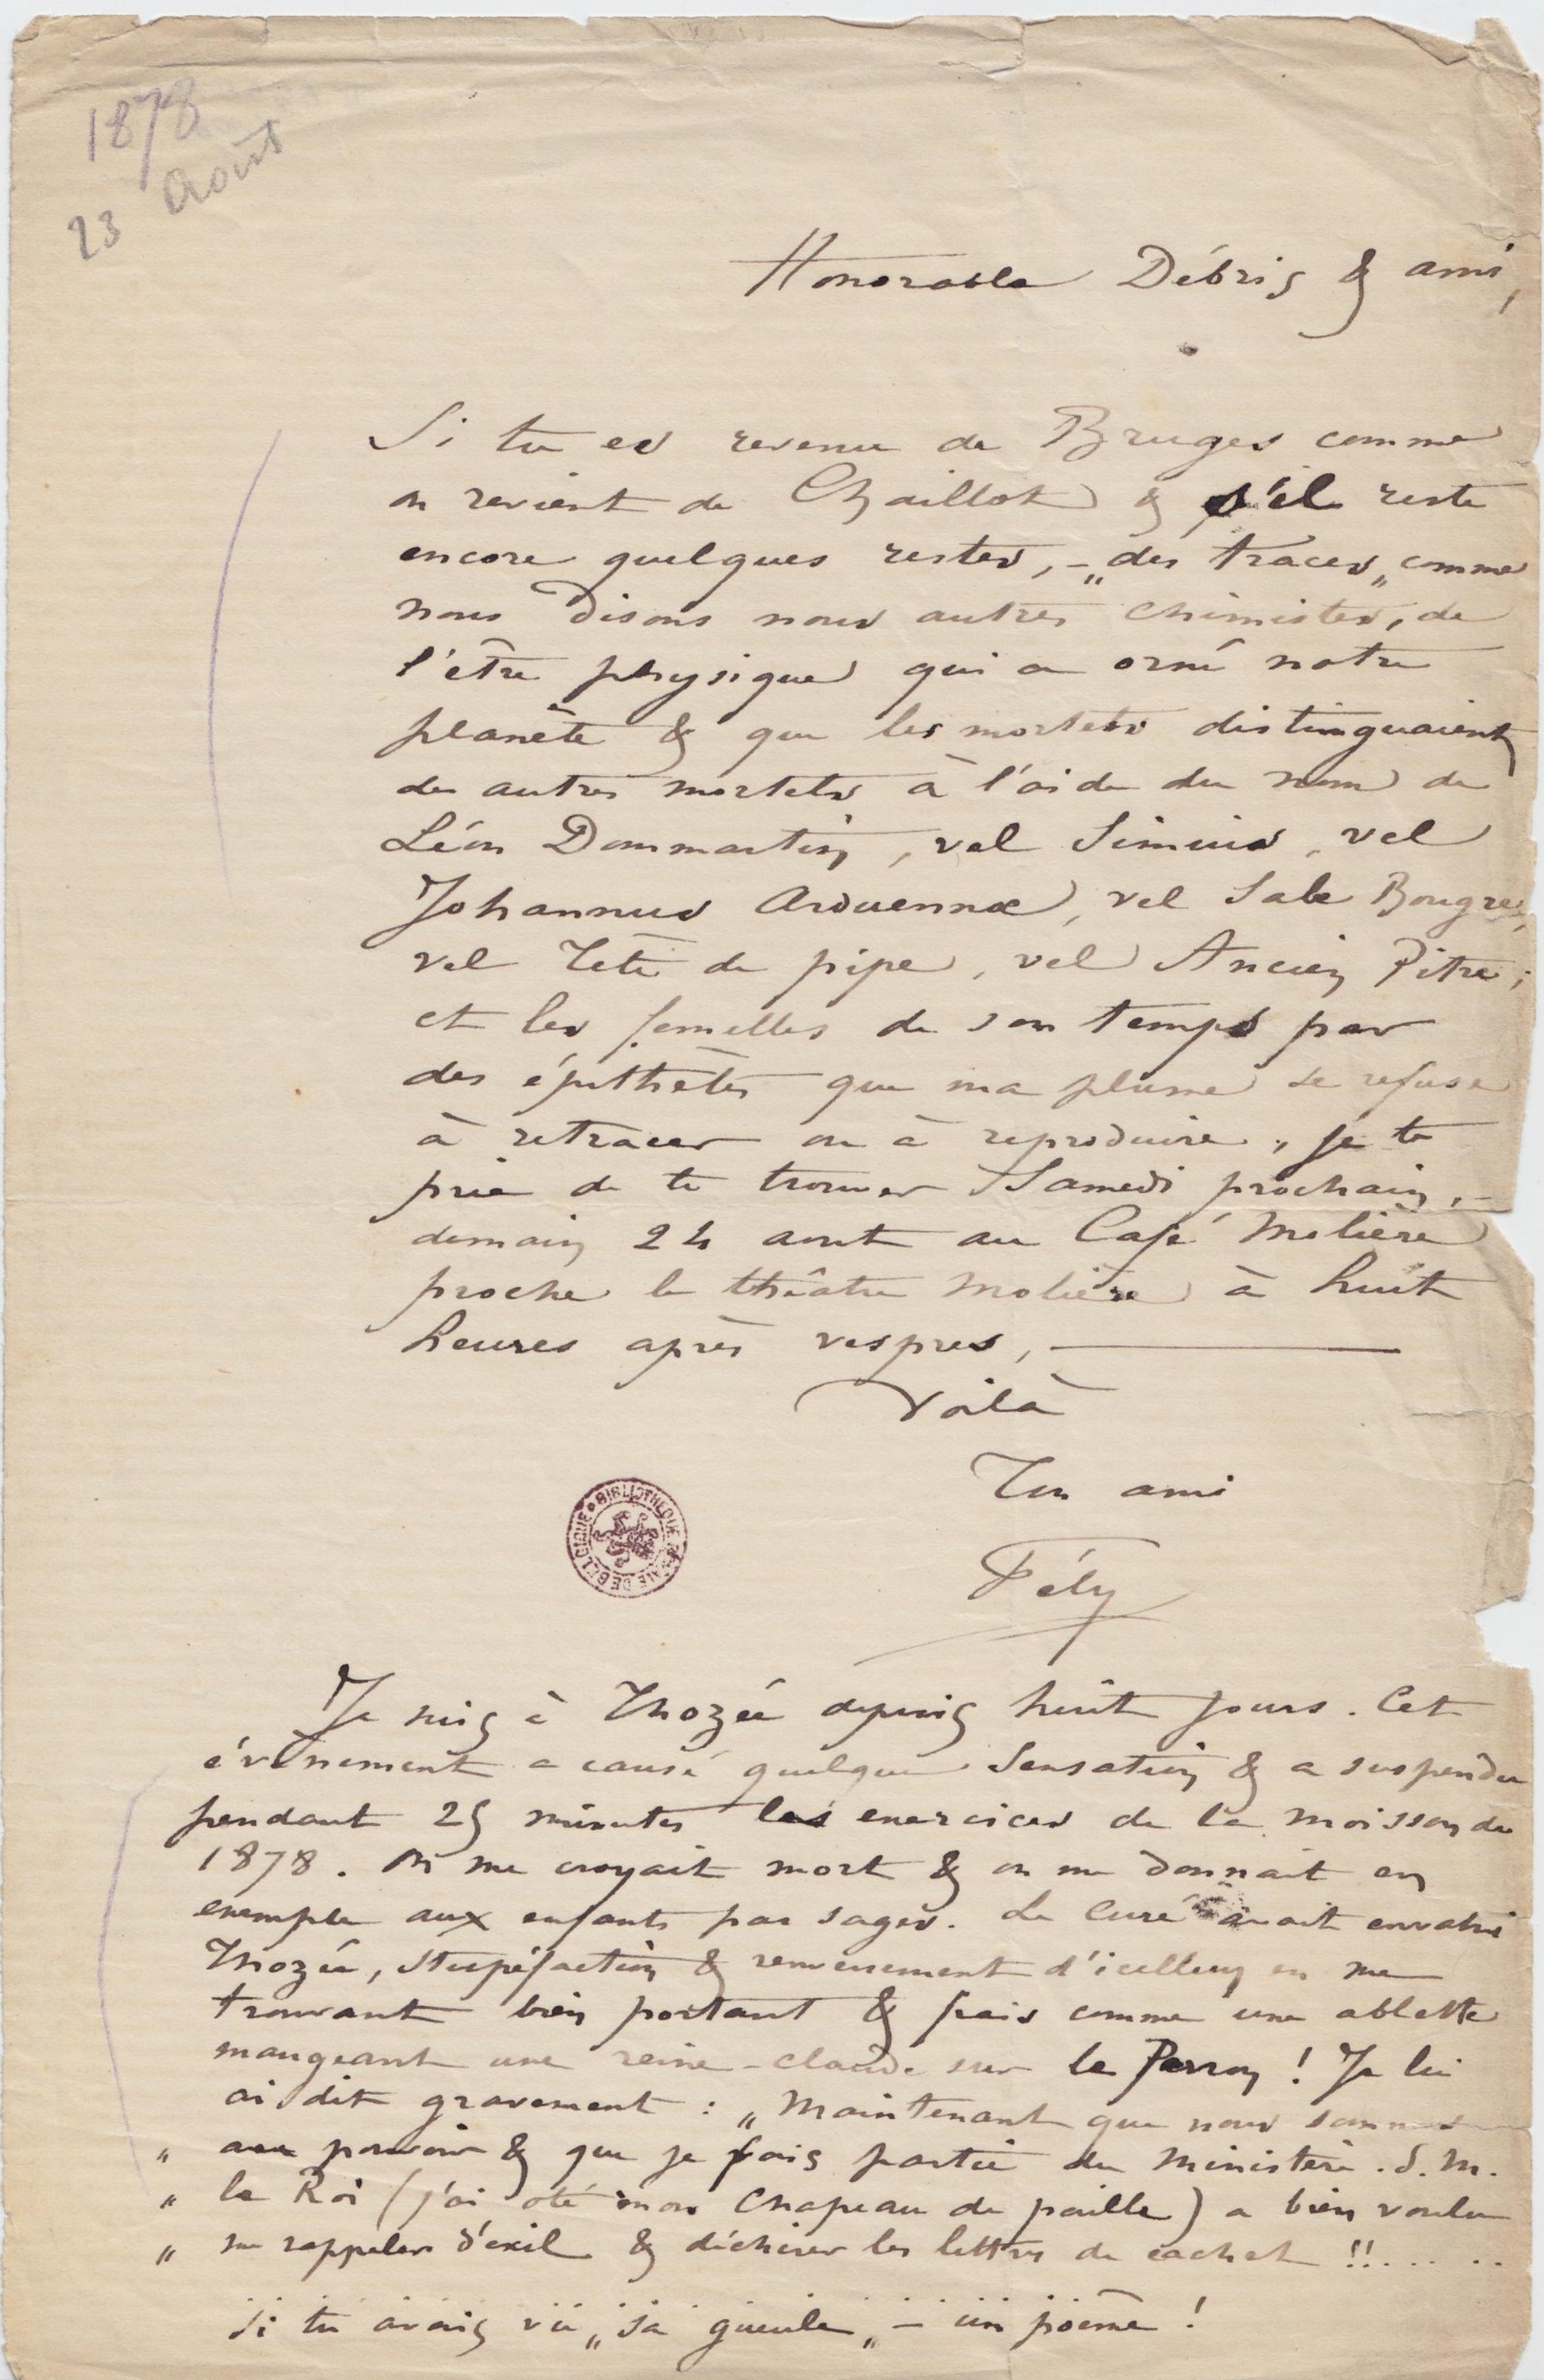 1878
23 Août
Honorable Débris & ami,
Si tu es revenu de Bruges comme
on revient de Chaillot & s'il reste
encore quelques restes, – „des traces„ comme
nous disons nous autres chimistes, de
l'être physique qui a orné notre
planète & que les mortels distinguaient
des autres mortels à l'aide du nom de
Léon Dommartin, vel Siminis, vel
Johannus Arduennae, vel Sale Bougre,
vel Tête de pipe, vel Ancien Pitre ;
et les femelles de son temps par
des épithètes que ma plume se refuse
à retracer ou à reproduire, je te
prie de te trouver Samedi prochain, –
demain 24 aout au Café Molière
proche le théâtre Molière à huit
heures après vespres, —
Voilà
Ton ami
Fély
BIBLIOTHEQUE ROYALE DE BELGIQUE
Je suis à Thozée depuis huit jours. Cet
évènement a causé quelque Sensation & a suspendu
pendant 25 minutes les exercices de la moisson de
1878. On me croyait mort & on me donnait en
exemple aux enfants pas sages. Le Curé avait envahi
Thozée, Stupéfaction & renversement d'icelluy en me
trouvant bien portant & frais comme une ablette
mangeant une reine-claude sur le Perron ! Je lui
ai dit gravement : „Maintenant que nous sommes
„ au pouvoir & que je fais partie du Ministère. S. M.
„ le Roi (j'ai oté mon chapeau de paille) a bien voulu
„ me rappeler d'exil & déchirer les lettres de cachet !!.....
Si tu avais vu „sa gueule„ – un poème !